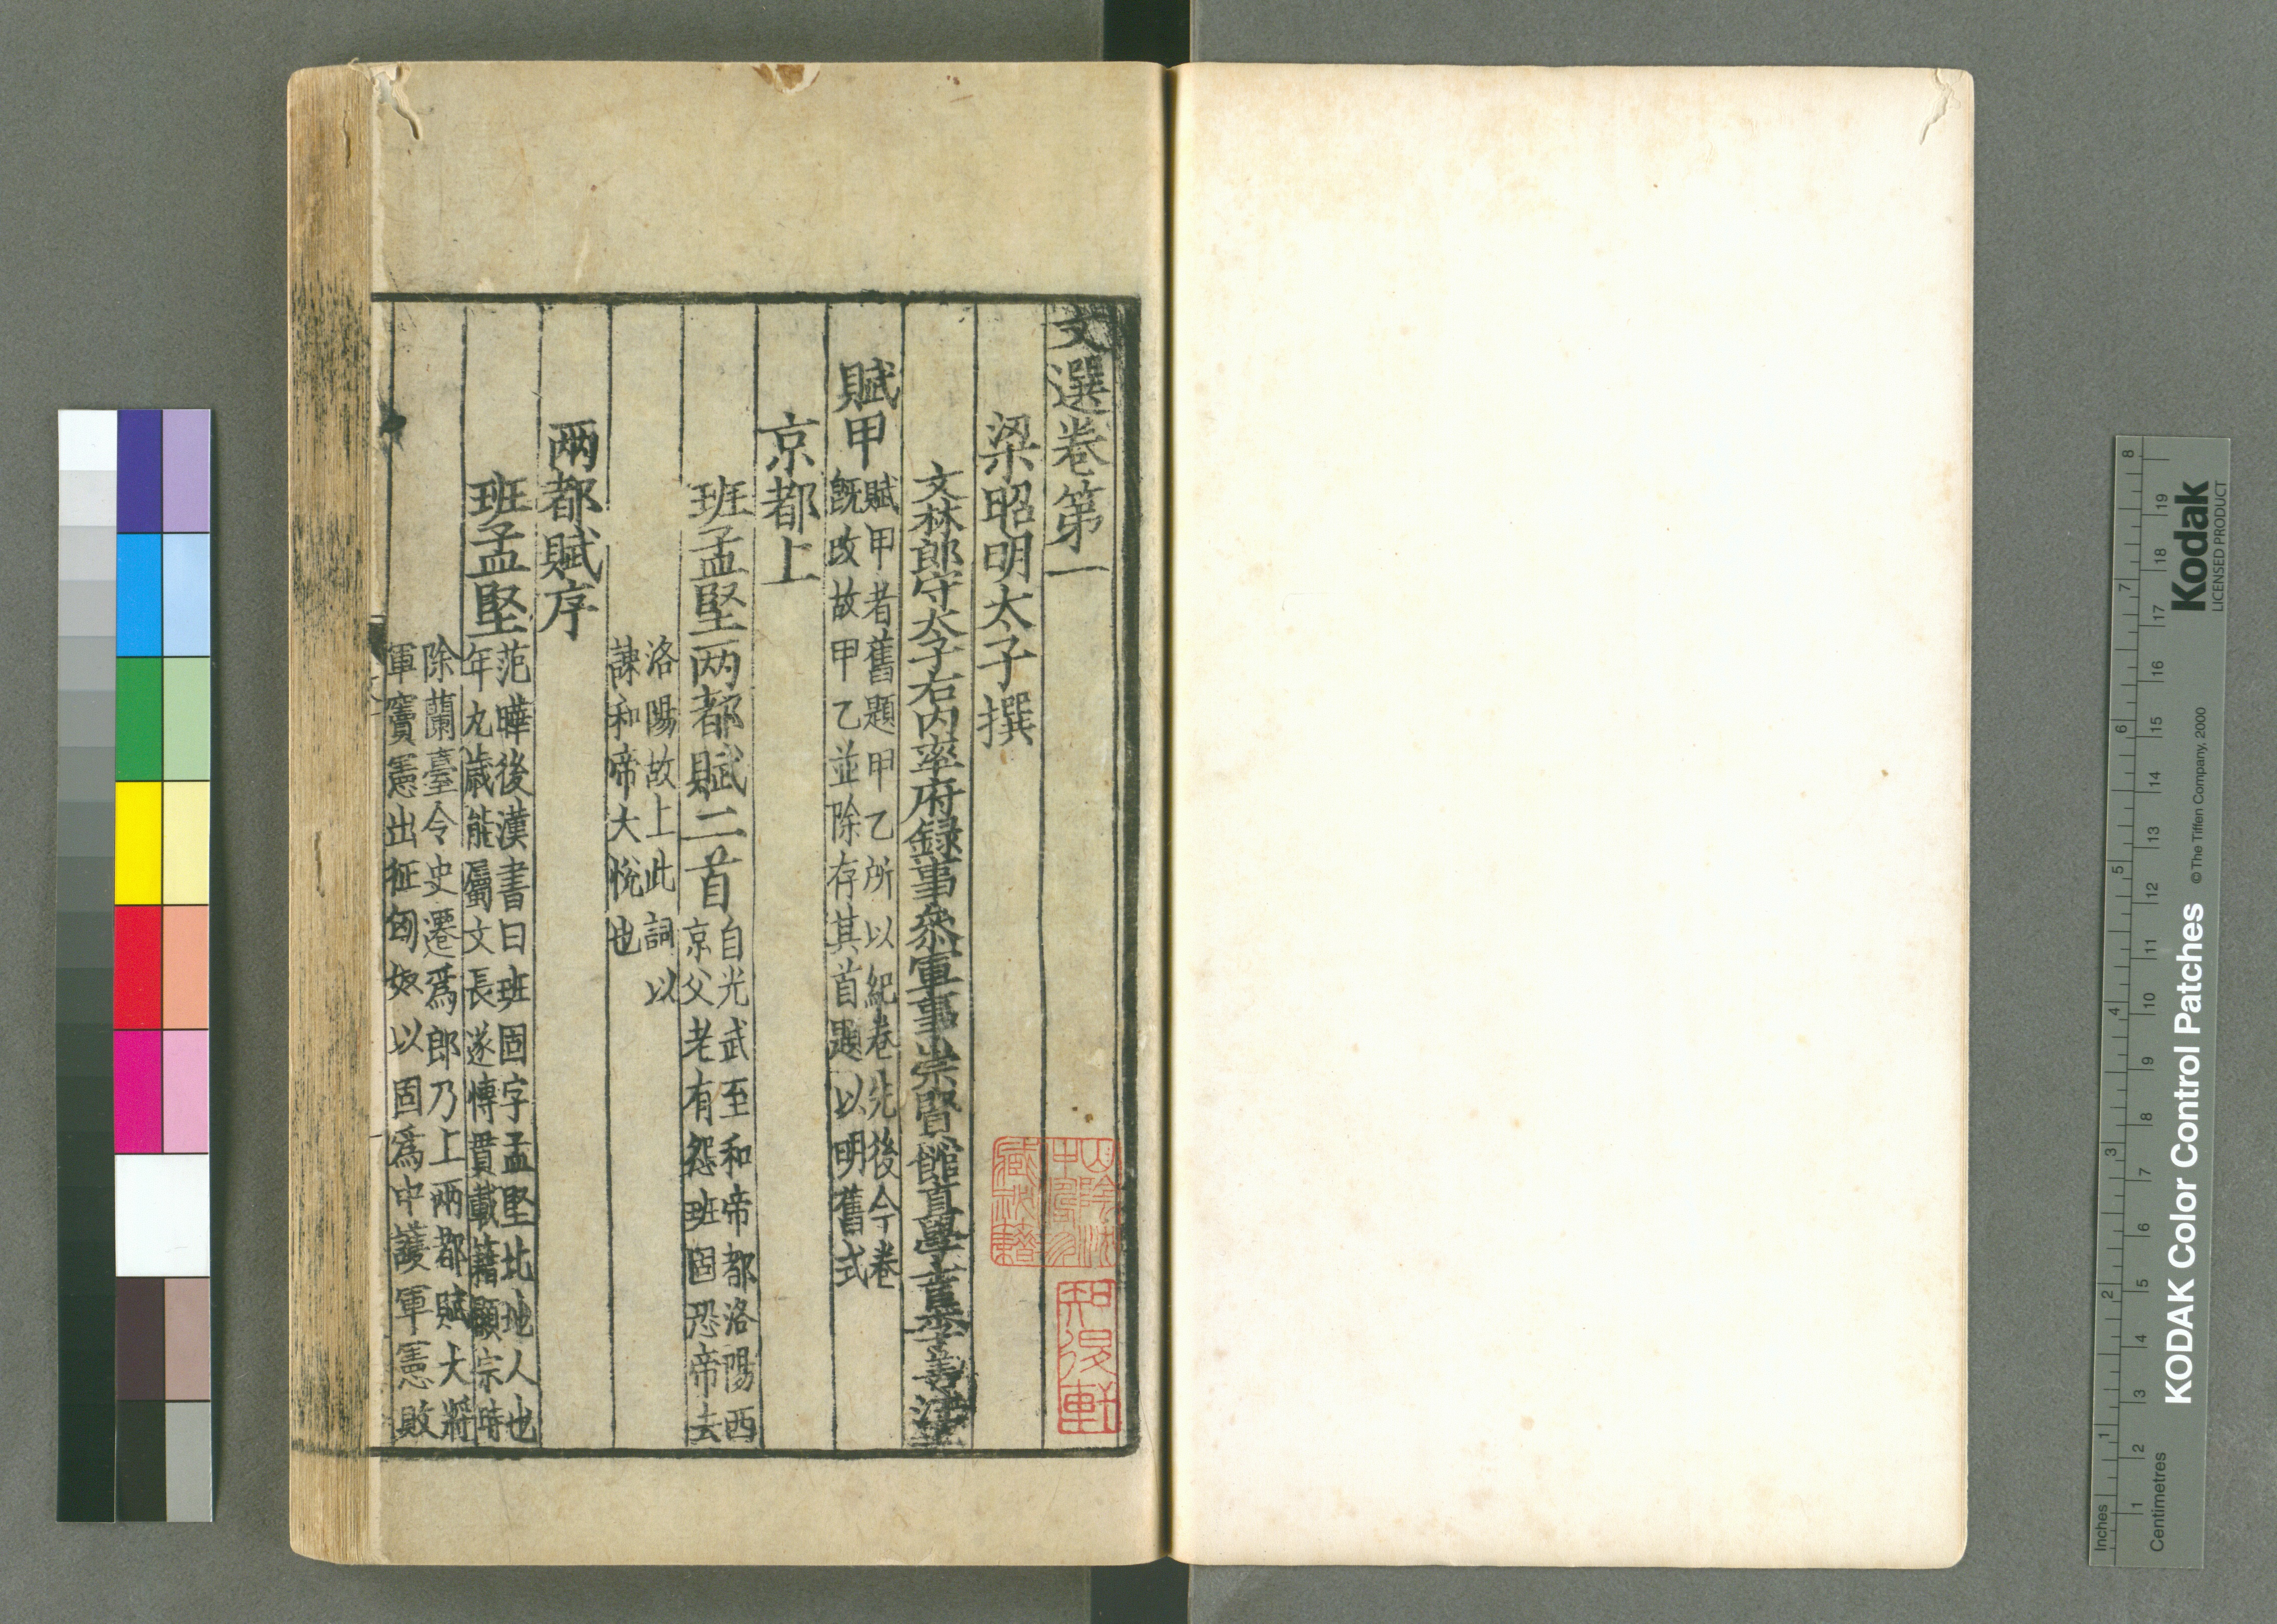 文選卷第一
梁昭明太子撰
文林郎守太子右內率府録事叅軍事崇賢館直學士臣李善注
賦甲
賦甲者舊題甲乙所以紀卷先後今卷
旣改故甲乙並除存其首題以明舊式
京都上
班孟堅两都賦二首
自光武至和帝都洛陽西
京父老有怨班固恐帝去
洛陽故上此詞以
諫和帝大悅也
两都賦序
班孟堅
范曄後漢書曰班固字孟堅北地人也
年九歲能屬文長遂博貫載籍顯宗時
除蘭臺令史遷爲郎乃上兩都賦大將
軍竇憲出征匈奴以固爲中護軍憲敗
知漫軒
Kodak
LICENSED PRODUCT
KODAK Color Control Patches
© The Tiffen Company, 2000
Inches 1 2 3 4 5 6 7 8
Centimetres 1 2 3 4 5 6 7 8 9 10 11 12 13 14 15 16 17 18 19